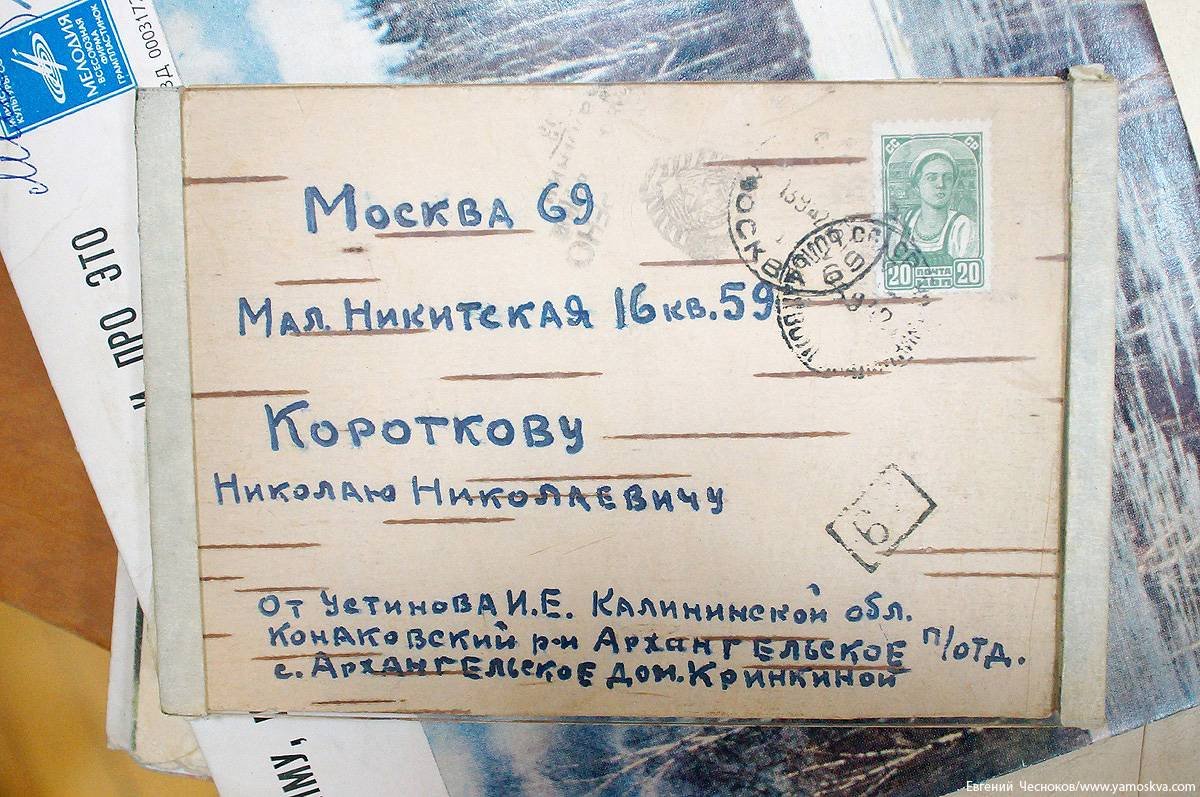 МЕЛОДИЯ
ВСЕСОЮЗНАЯ
ФИРМА
ГРАМПЛАСТИНОК
И ПРО ЭТО
Москва 69
Мал. Никитская 16 кв. 59
Короткову
Николаю Николаевичу
От Устинова И.Е. Калининской обл.
Конаковский р-н Архангельское п/отд.
с. Архангельское дом. Кринкиной
СС СР
20 ПОЧТА 20
МОСКВА
6
Евгений Чесноков/www.yamoskva.com